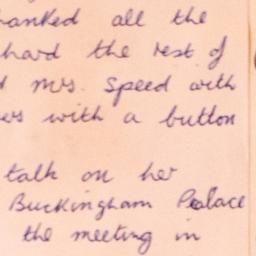 hanked all the
hard the rest of
Mrs. Speed with
with a button
talk on her
Buckingham Palace
the meeting in